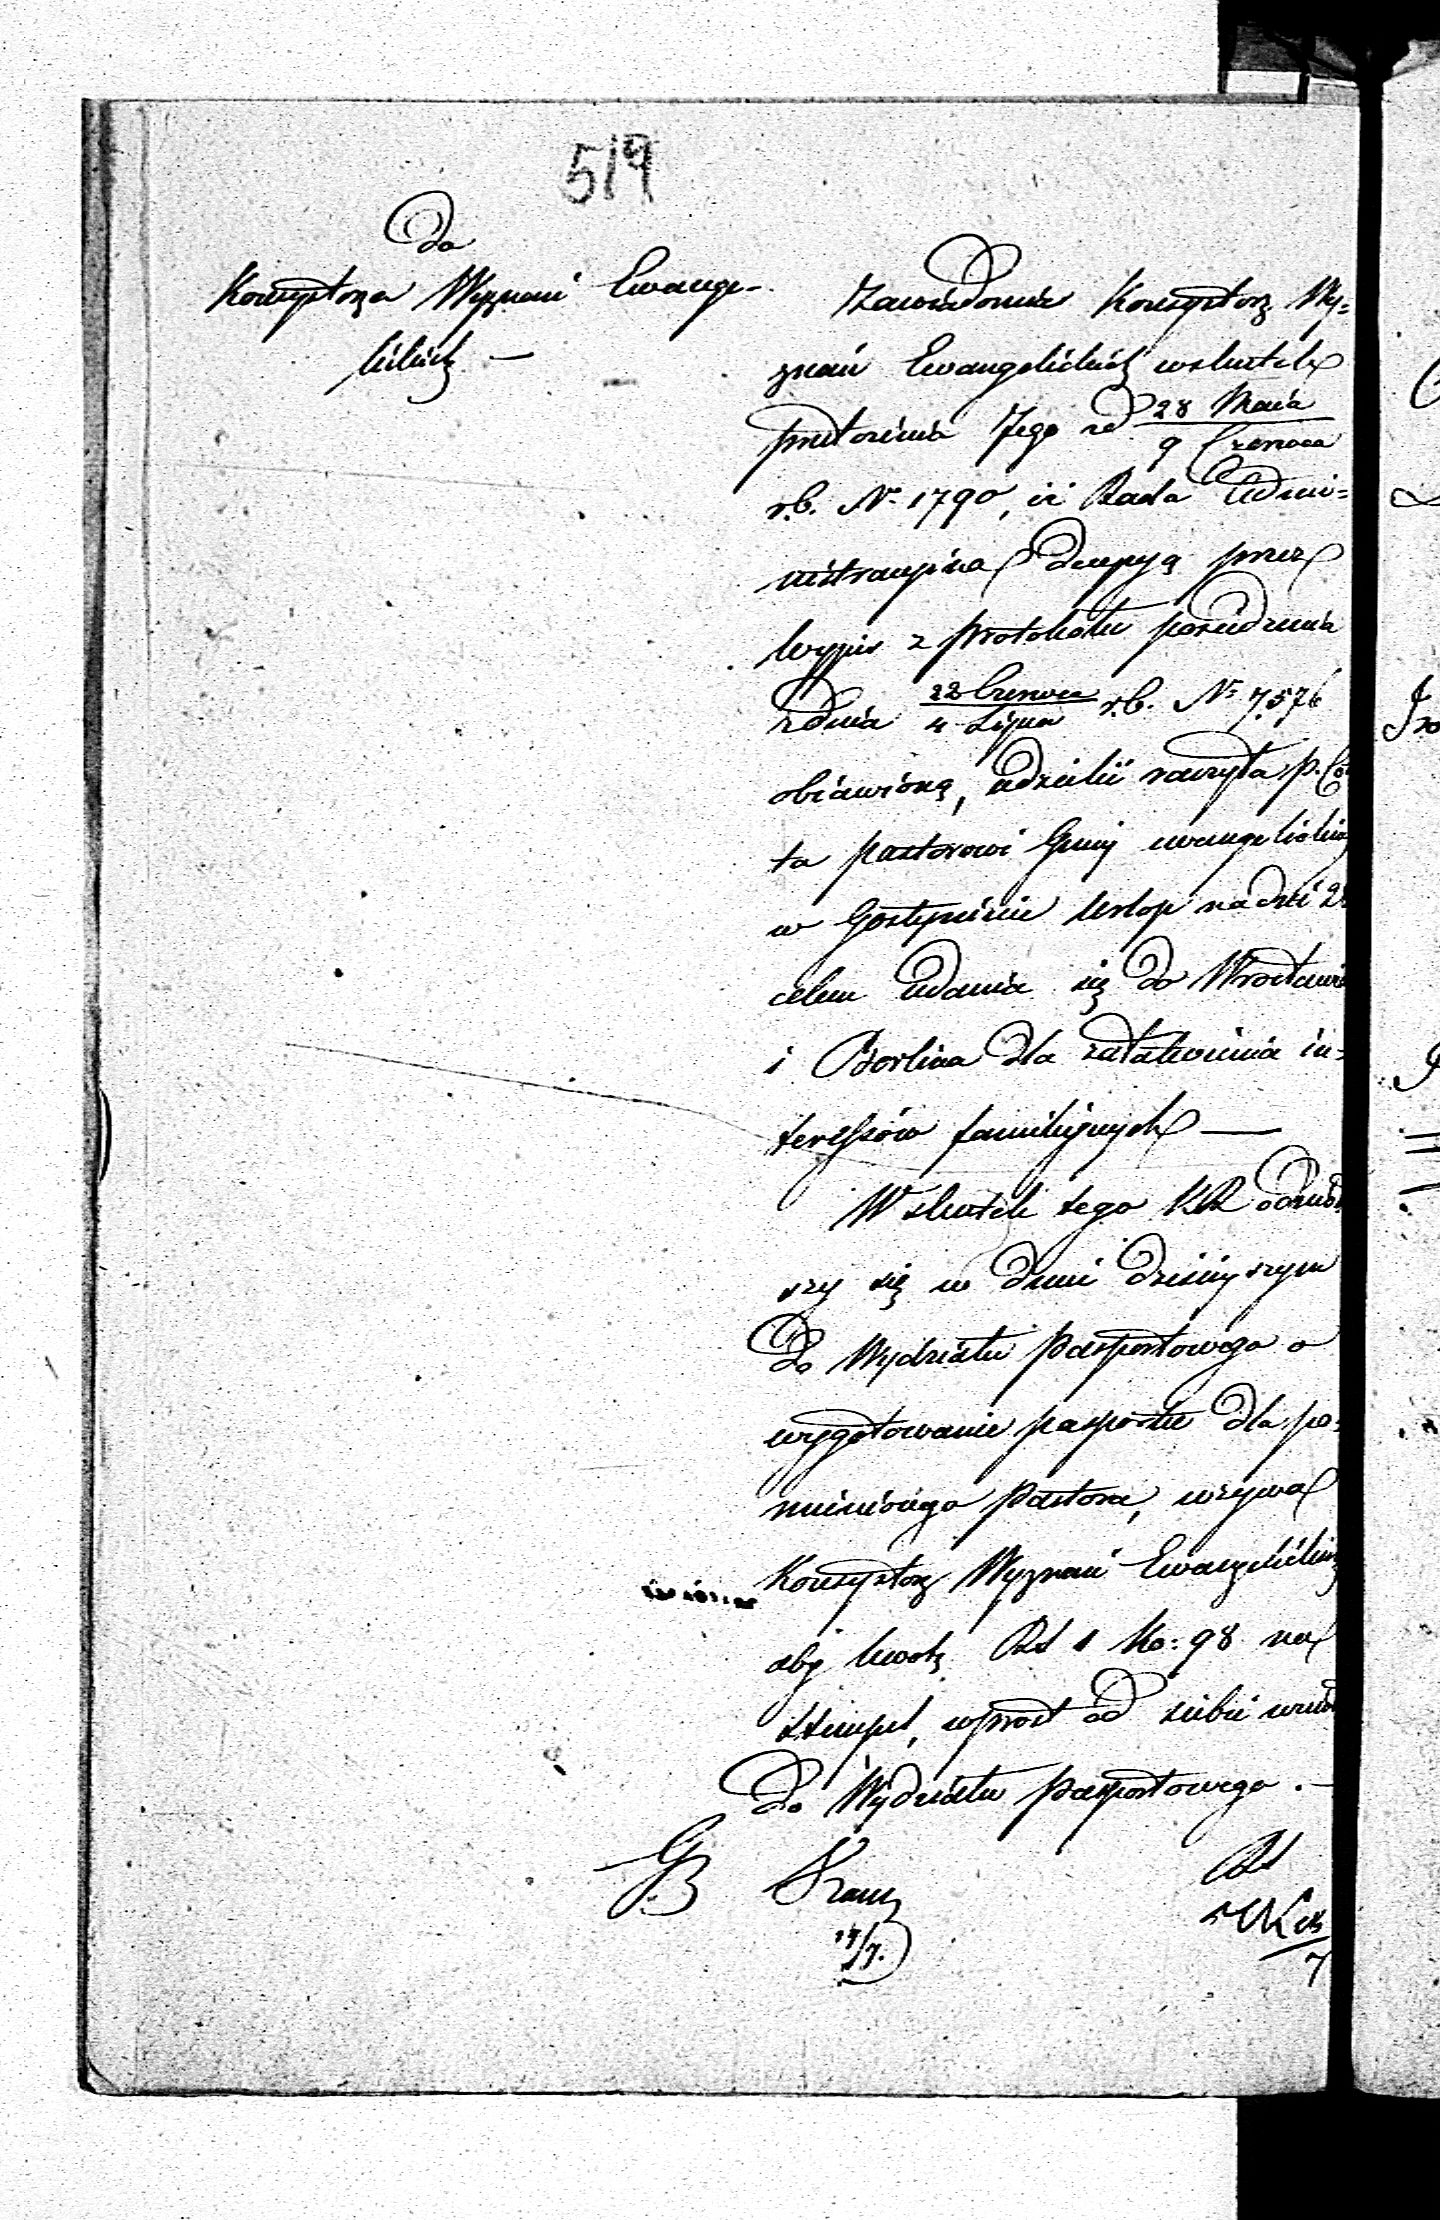 519
Do
Konsystorza Wyznań Ewange-
lickich —
Zawiadomia Konsystorz Wy=
znań Ewangelickich wskutek
przełożenia Jego z d. 28 Maia
9 Czerwca
r.b. N. 1790, iż Rada Admi=
nistracyina decyzyą przez
wypis z protokołu posiedzenia
z dnia 22 Czerwca
4 Lipca r.b. N. 7,576
obiawioną, udzielić raczyła p.
ta pastorowi Gminy ewangelickiey
w Gostyninie urlop na dni 2
celem udania się do Wrocławia
i Berlina dla załatwienia in=
teressów familijnych —
W skutek tego KR odniósł
szy się w dniu dzisiejszym
Do Wydziału Pasportowego o
wygotowanie pasportu dla po=
mienionego Pastora, wzywa
Konsystorz Wyznań Ewangelickich
aby kwotę RS 1 Ko: 98 na
stempel, wprost od siebie wniósł
do Wydziału Pasportowego. —